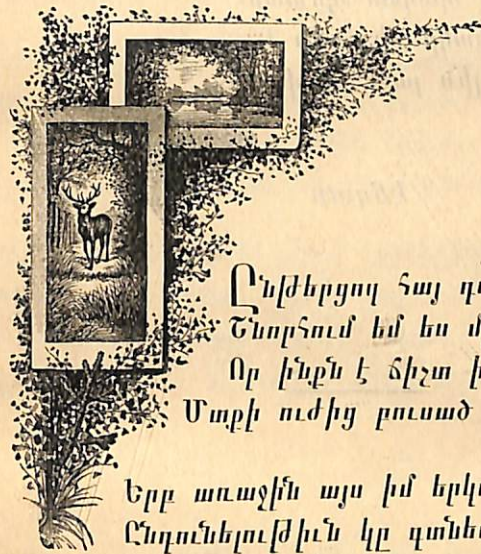 Ընթերցող հայ
Շնորհում եմ ես
Որ ինքն է ճիշտ
Մտքի ուժից բուսած
Երբ առաջին այս իմ
Ընդունելութիւն կը